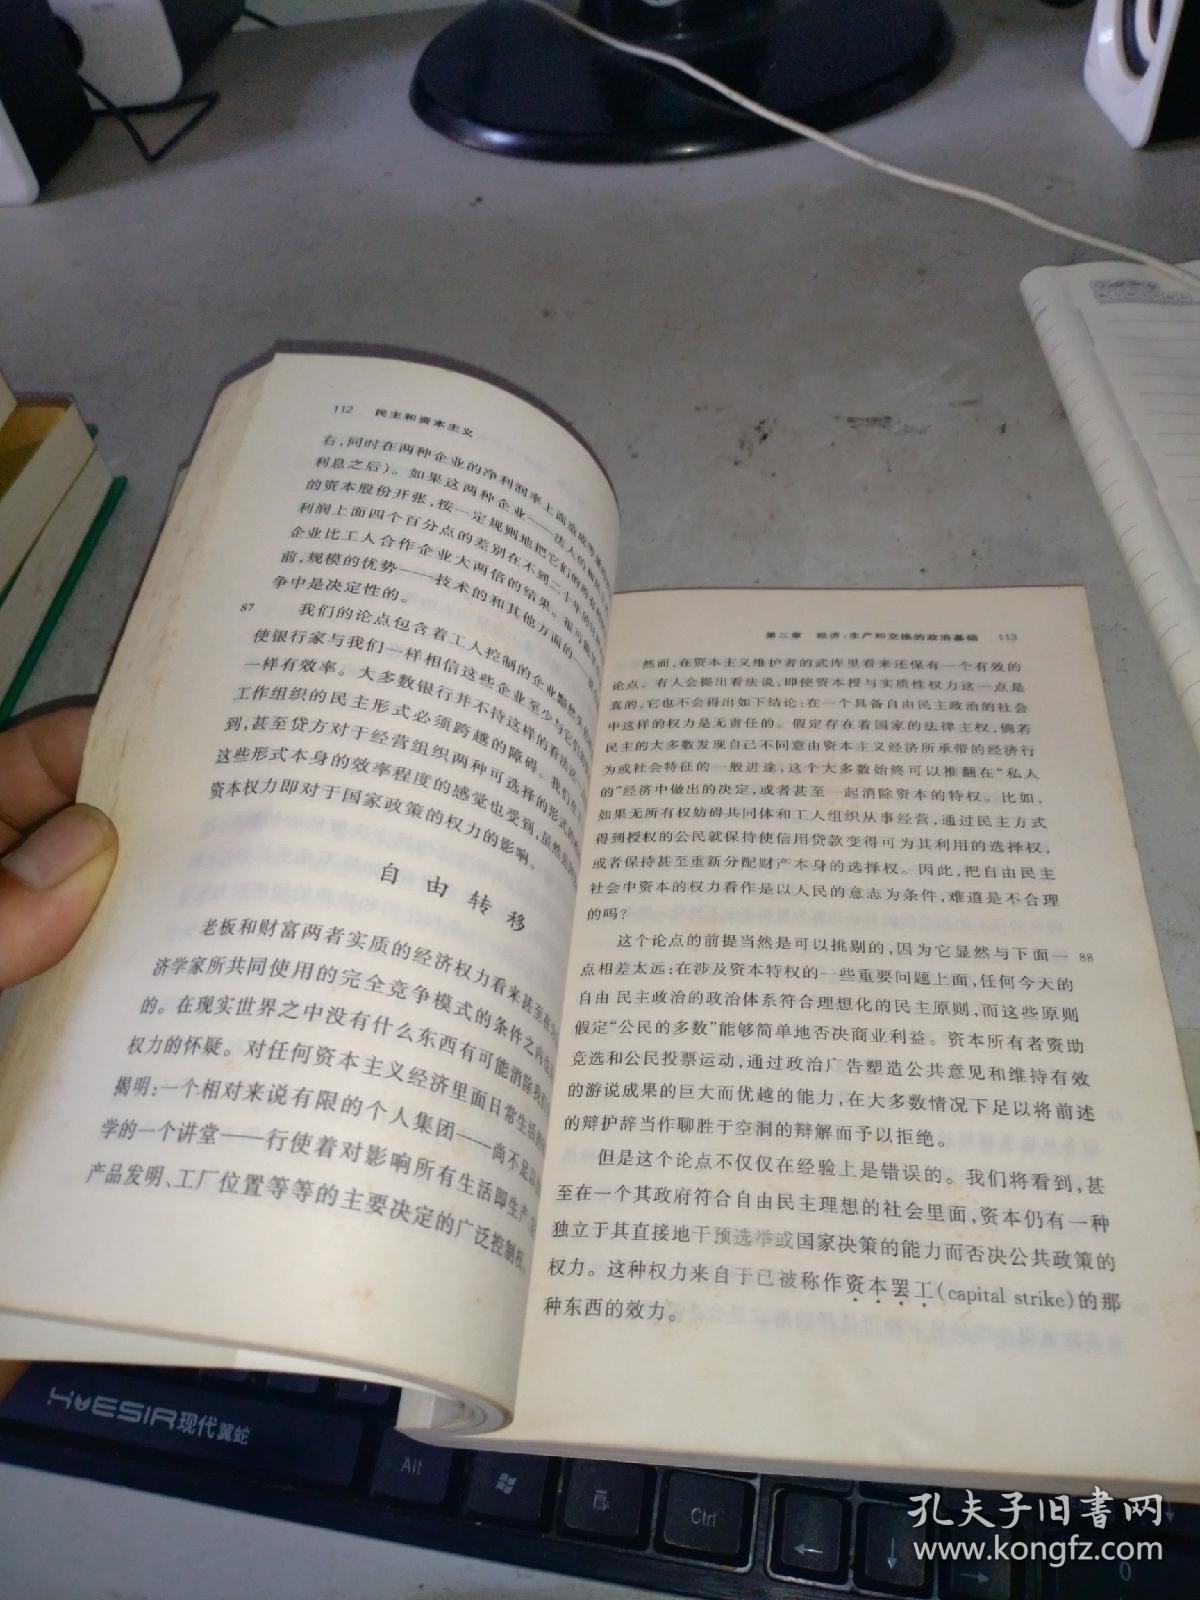 112 民主和资本主义
右,同时在两种企业的净利润率上面造成
利息之后)。如果这两种企业——法人的和
的资本股份开张,按一定规则地把它们的所有
利润上面四个百分点的差别在不到二十年
企业比工人合作企业大两倍的结果。很可能
前,规模的优势——技术的和其他方面的——
争中是决定性的。
87 我们的论点包含着工人控制的企业
使银行家与我们一样相信这些企业至少与它们
一样有效率。大多数银行并不持这样的看法这一
工作组织的民主形式必须跨越的障碍。我们
到,甚至贷方对于经营组织两种可选择的形式的
这些形式本身的效率程度的感觉也受到,虽然是
资本权力即对于国家政策的权力的影响。
自由转移
老板和财富两者实质的经济权力看来甚至在
济学家所共同使用的完全竞争模式的条件之内也
的。在现实世界之中没有什么东西有可能消除我们
权力的怀疑。对任何资本主义经济里面日常生活
揭明:一个相对来说有限的个人集团——尚不足以
学的一个讲堂——行使着对影响所有生活即生产、
产品发明、工厂位置等等的主要决定的广泛控制权。
第三章 经济:生产和交换的政治基础 113
然而,在资本主义维护者的武库里看来还保有一个有效的
论点。有人会提出看法说,即使资本授与实质性权力这一点是
真的,它也不会得出如下结论:在一个具备自由民主政治的社会
中这样的权力是无责任的。假定存在着国家的法律主权,倘若
民主的大多数发现自己不同意由资本主义经济所承带的经济行
为或社会特征的一般进途,这个大多数始终可以推翻在“私人
的”经济中做出的决定,或者甚至一起消除资本的特权。比如,
如果无所有权妨碍共同体和工人组织从事经营,通过民主方式
得到授权的公民就保持使信用贷款变得可为其利用的选择权,
或者保持甚至重新分配财产本身的选择权。因此,把自由民主
社会中资本的权力看作是以人民的意志为条件,难道是不合理
的吗?
这个论点的前提当然是可以挑剔的,因为它显然与下面一 88
点相差太远:在涉及资本特权的一些重要问题上面,任何今天的
自由民主政治的政治体系符合理想化的民主原则,而这些原则
假定“公民的多数”能够简单地否决商业利益。资本所有者资助
竞选和公民投票运动,通过政治广告塑造公共意见和维持有效
的游说成果的巨大而优越的能力,在大多数情况下足以将前述
的辩护辞当作聊胜于空洞的辩解而予以拒绝。
但是这个论点不仅仅在经验上是错误的。我们将看到,甚
至在一个其政府符合自由民主理想的社会里面,资本仍有一种
独立于其直接地干预选举或国家决策的能力而否决公共政策的
权力。这种权力来自于已被称作资本罢工(capital strike)的那
种东西的效力。
HYESIR现代翼蛇
Alt
Ctrl
0
孔夫子旧书网
www.kongfz.com